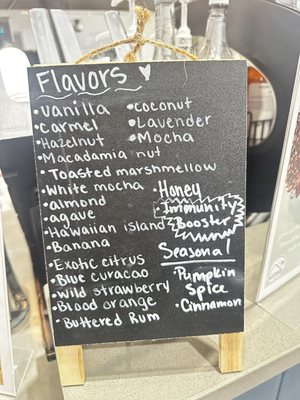 Flavors
•Vanilla
•Carmel
•Hazelnut
•Macadamia nut
•Toasted marshmellow
•White mocha
•almond
•agave
•Hawaiian island
•Banana
•Exotic citrus
•Blue curacao
•Wild strawberry
•Blood orange
•Buttered Rum
•coconut
•Lavender
•Mocha
•Honey
•Immunity
Booster
Seasonal
•Pumpkin
Spice
•Cinnamon